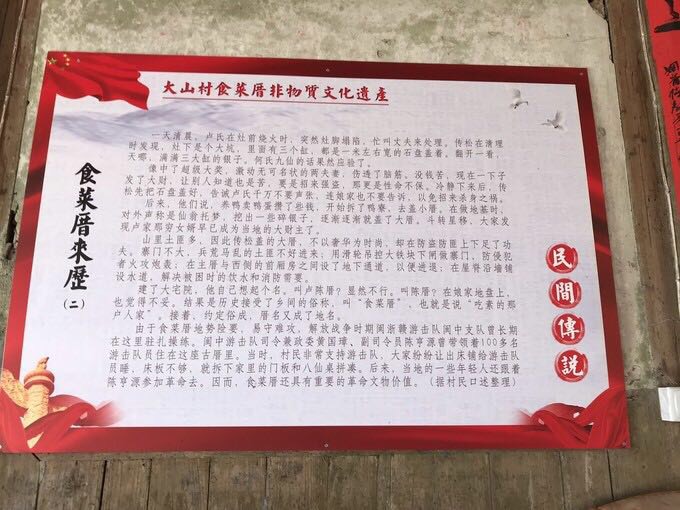 大山村食菜厝非物質文化遺產
食菜厝來歷
(二)
一天清晨，卢氏在灶前烧火时，突然灶脚塌陷，忙叫丈夫来处理。传松在清理
时发现，灶下是个大坑，里面有三个缸，都是一米左右宽的石盘盖着。翻开一看，
天哪，满满三大缸的银子。何氏九仙的话果然应验了。
像中了超级大奖，激动无可名状的两夫妻，伤透了脑筋。没钱苦，现在一下子
发了大财，让别人知道也是苦。要是招来强盗，那更是性命不保。冷静下来后，传
松先把石盘盖好，告诫卢氏千万不要声张，连娘家也不要告诉，以免招来杀身之祸。
后来，他们说，养鸭卖鸭蛋攒了些钱，开始拆了鸭寮，去盖小厝。在做地基时，
对外声称是仙翁托梦，挖出一些碎银子，逐渐逐渐就盖了大厝。斗转星移，大家发
现卢家那穷女婿早已成为当地的大财主了。
山里土匪多，因此传松盖的大厝，不以奢华为时尚，却在防盗防匪上下足了功
夫。寨门不大，兵荒马乱的土匪不好进来；用滑轮吊控大铁块下闸做寨门，防侵犯
者火攻炮轰；在主厝与西侧的前厢房之间设了地下通道，以便进退；在屋脊沿墙铺
设水道，解决被困时的饮水和消防需要。
建了大宅院，他自己想起个名。叫卢陈厝？显然不行。叫陈厝？在娘家地盘上，
也觉得不妥。结果是历史接受了乡间的俗称，叫“食菜厝”，也就是说“吃素的那
户人家”。接着，约定俗成，厝名又成了地名。
由于食菜厝地势险要，易守难攻，解放战争时期闽浙赣游击队闽中支队曾长期
在这里驻扎操练。闽中游击队司令兼政委黄国璋，副司令员陈亨源曾带领着100多名
游击队员住在这座古厝里。当时，村民非常支持游击队，大家纷纷让出床铺给游击队
员睡，床板不够，就拆下家里的门板和八仙桌拼凑。后来，当地的一些年轻人还跟着
陈亨源参加革命去。因而，食菜厝还具有重要的革命文物价值。（据村民口述整理）
民間傳説